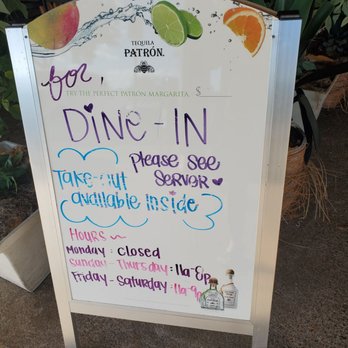 TEQUILA
PATRÓN.
for,
TRY THE PERFECT PATRÓN MARGARITA. $
DINE-IN
please see
SERVER
TAKE-out
available inside
HOURS
Monday: closed
Sunday - Thursday: 11a-8p
Friday - Saturday: 11a-9p